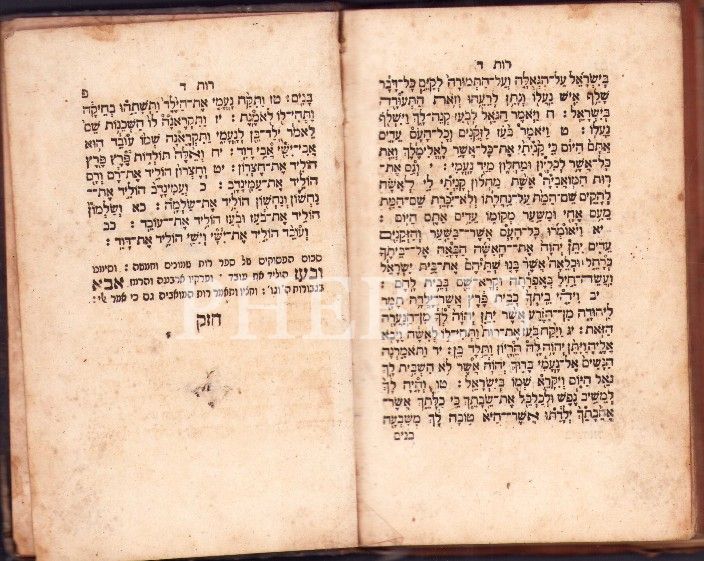 רות ד
בְּיִשְׂרָאֵל עַל־הַגְּאֻלָּה וְעַל־הַתְּמוּרָה לְקַיֵּם כָּל־דָּבָר
שָׁלַף אִישׁ נַעֲלוֹ וְנָתַן לְרֵעֵהוּ וְזֹאת הַתְּעוּדָה
בְּיִשְׂרָאֵל׃ ח וַיֹּאמֶר הַגֹּאֵל לְבֹעַז קְנֵה־לָךְ וַיִּשְׁלֹף
נַעֲלוֹ׃ ט וַיֹּאמֶר בֹּעַז לַזְּקֵנִים וְכָל־הָעָם עֵדִים
אַתֶּם הַיּוֹם כִּי קָנִיתִי אֶת־כָּל־אֲשֶׁר לֶאֱלִימֶלֶךְ וְאֵת
כָּל־אֲשֶׁר לְכִלְיוֹן וּמַחְלוֹן מִיַּד נָעֳמִי׃ י וְגַם אֶת־
רוּת הַמּוֹאֲבִיָּה אֵשֶׁת מַחְלוֹן קָנִיתִי לִי לְאִשָּׁה
לְהָקִים שֵׁם־הַמֵּת עַל־נַחֲלָתוֹ וְלֹא־יִכָּרֵת שֵׁם־הַמֵּת
מֵעִם אֶחָיו וּמִשַּׁעַר מְקוֹמוֹ עֵדִים אַתֶּם הַיּוֹם׃
יא וַיֹּאמְרוּ כָּל־הָעָם אֲשֶׁר־בַּשַּׁעַר וְהַזְּקֵנִים
עֵדִים יִתֵּן יְהוָה אֶת־הָאִשָּׁה הַבָּאָה אֶל־בֵּיתֶךָ
כְּרָחֵל וּכְלֵאָה אֲשֶׁר בָּנוּ שְׁתֵּיהֶם אֶת־בֵּית יִשְׂרָאֵל
וַעֲשֵׂה־חַיִל בְּאֶפְרָתָה וּקְרָא־שֵׁם בְּבֵית לָחֶם׃
יב וִיהִי בֵיתְךָ כְּבֵית פֶּרֶץ אֲשֶׁר־יָלְדָה תָמָר
לִיהוּדָה מִן־הַזֶּרַע אֲשֶׁר יִתֵּן יְהוָה לְךָ מִן־הַנַּעֲרָה
הַזֹּאת׃ יג וַיִּקַּח בֹּעַז אֶת־רוּת וַתְּהִי־לוֹ לְאִשָּׁה וַיָּבֹא
אֵלֶיהָ וַיִּתֵּן יְהוָה לָהּ הֵרָיוֹן וַתֵּלֶד בֵּן׃ יד וַתֹּאמַרְנָה
הַנָּשִׁים אֶל־נָעֳמִי בָּרוּךְ יְהוָה אֲשֶׁר לֹא הִשְׁבִּית לָךְ
גֹּאֵל הַיּוֹם וְיִקָּרֵא שְׁמוֹ בְּיִשְׂרָאֵל׃ טו וְהָיָה לָךְ
לְמֵשִׁיב נֶפֶשׁ וּלְכַלְכֵּל אֶת־שֵׂיבָתֵךְ כִּי כַלָּתֵךְ אֲשֶׁר־
אֲהֵבַתֶךְ יְלָדַתּוּ אֲשֶׁר־הִיא טוֹבָה לָךְ מִשִּׁבְעָה
בנים
רות ד
פ
בָּנִים׃ טז וַתִּקַּח נָעֳמִי אֶת־הַיֶּלֶד וַתְּשִׁתֵהוּ בְחֵיקָהּ
וַתְּהִי־לוֹ לְאֹמֶנֶת׃ יז וַתִּקְרֶאנָה לוֹ הַשְּׁכֵנוֹת שֵׁם
לֵאמֹר יֻלַּד־בֵּן לְנָעֳמִי וַתִּקְרֶאנָה שְׁמוֹ עוֹבֵד הוּא
אֲבִי־יִשַׁי אֲבִי דָוִד׃ יח וְאֵלֶּה תּוֹלְדוֹת פָּרֶץ פֶּרֶץ
הוֹלִיד אֶת־חֶצְרוֹן׃ יט וְחֶצְרוֹן הוֹלִיד אֶת־רָם וְרָם
הוֹלִיד אֶת־עַמִּינָדָב׃ כ וְעַמִּינָדָב הוֹלִיד אֶת־
נַחְשׁוֹן וְנַחְשׁוֹן הוֹלִיד אֶת־שַׂלְמָה׃ כא וְשַׂלְמוֹן
הוֹלִיד אֶת־בֹּעַז וּבֹעַז הוֹלִיד אֶת־עוֹבֵד׃ כב
וְעוֹבֵד הוֹלִיד אֶת־יִשָׁי וְיִשַׁי הוֹלִיד אֶת־דָּוִד׃
סכום הפסוקים של ספר רות שמונים וחמשה׃ וסימנו
ובעז הוליד את עובד׃ ופרקיו ארבעה וסימן אבא
בגבורות ה׳ וגו׳׃ וחציו ותאמר רות המואביה גם כי אמר אלי׃
חזק